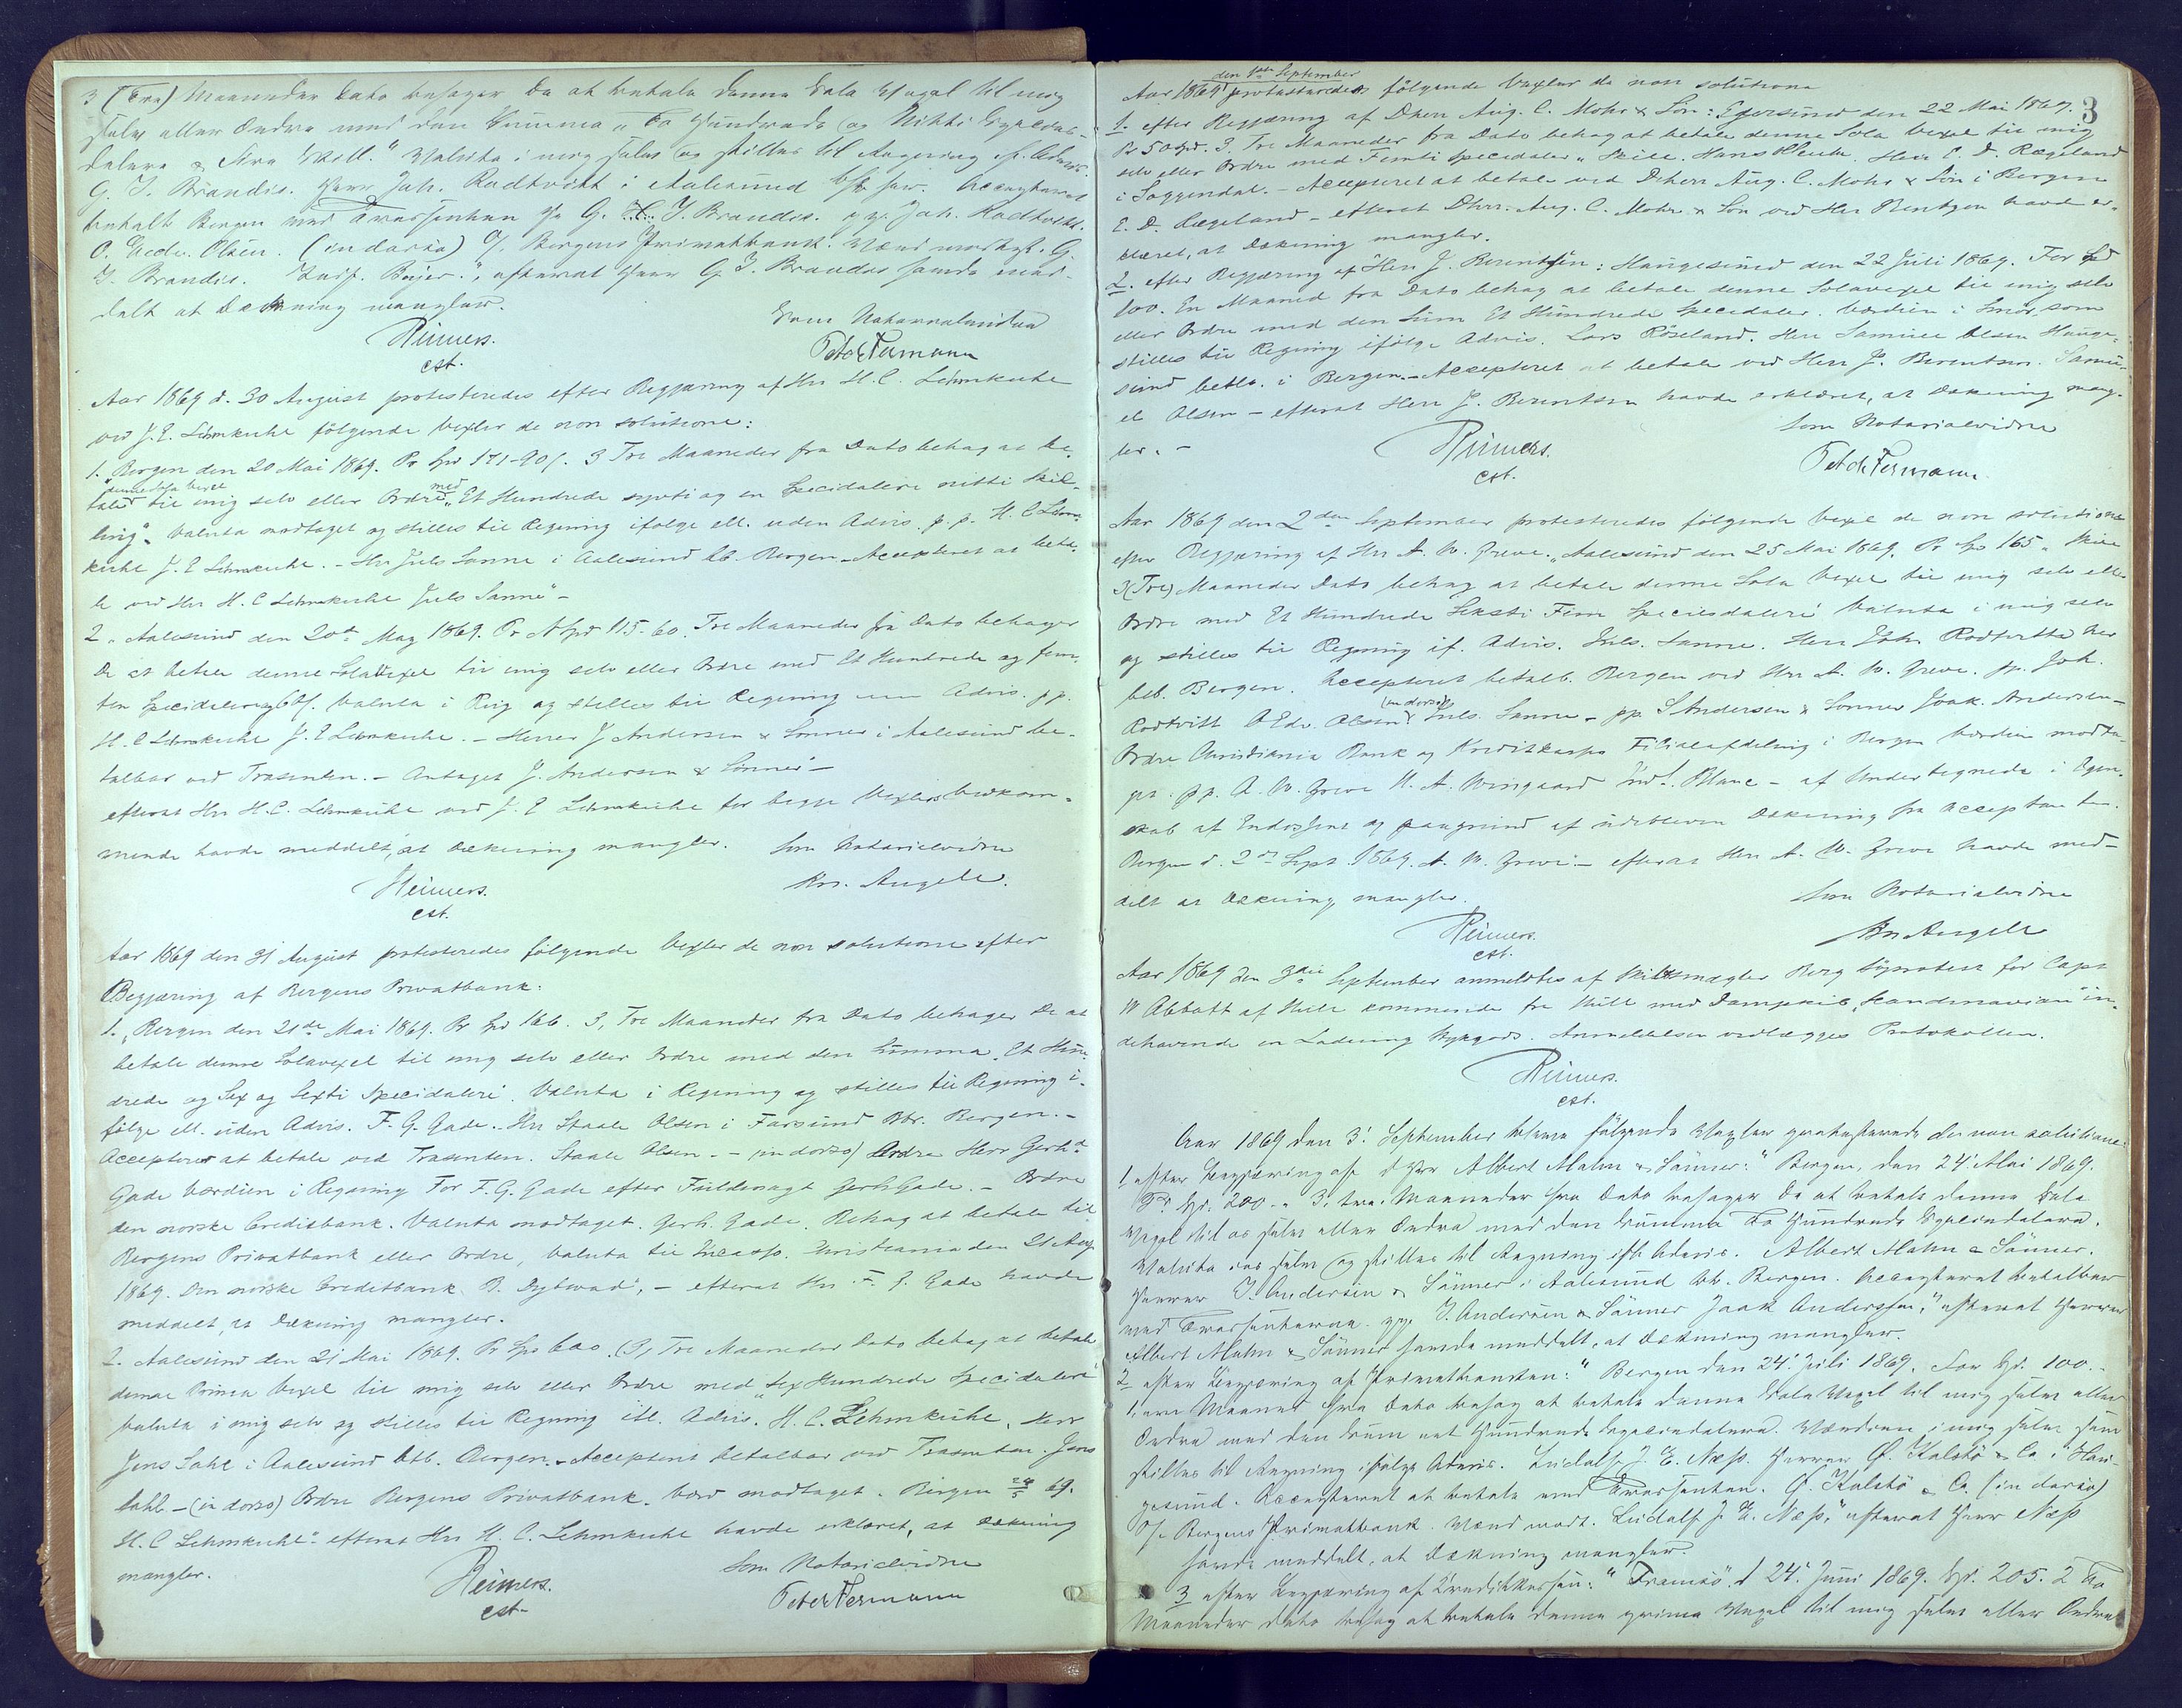 3 (Tre) Maaneder Dato behager De at betale denne Sola Vexel til mig
selv eller Ordre med den Summa „To Hundrede og Nitti Species-
dalere & fire Skill." Valuta i mig selv og stilles til Regning if. Advis.
G. J. Brandis. Herr Joh. Rodtvitt i Aalesund btb hos. Accepteret
betalt Bergen ved Trassenten Hr G. J. Brandis. pp. Joh. Rodtvitt.
O. Edv. Olsen. (in dorso) O/ Bergens Privatbank. Værd modtgt. G.
J. Brandis. Beyer.", efterat Herr G. J. Brandis havde med-
delt at Dækning mangler.
Som Notarialvidne
Reimers. Peter Fermann
cst.
Aar 1869 d. 30 August protesteredes efter Begjæring af Hr H. C. Lehmkuhl
ved J. E. Lehmkuhl følgende Vexler de non solutione:
1. „Bergen den 20 Mai 1869. Pr Spd 171-90/. 3 Tre Maaneder fra Dato behag at be-
tale denne Sola Vexel til mig selv eller Ordre med „Et Hundrede sytti og en Specidalere nitti Skil-
ling". Valuta modtaget og stilles til Regning ifølge ell. uden Advis. p. p. H. C Lehm-
kuhl J. E Lehmkuhl. - Hr Juls Sanne i Aalesund bb. Bergen - Accepteret at beta-
le ved Hr H. C Lehmkuhl Juls Sanne" -
2. „Aalesund den 20de May 1869. Pr N Spd 115-60. Tre Maaneder fra Dato behager
De at betale denne Solavexel til mig selv eller Ordre med Et Hundrede og fem-
ten Specidaler og 60/. Valuta i Rig og stilles til Regning uden Advis. pp.
H. C Lehmkuhl J. E Lehmkuhl. - Herrer J Andersen & Sønner i Aalesund be-
talbar ved Trasenten. - Antaget J. Andersen & Sønner" -
efterat Hr H. C. Lehmkuhl ved J. E Lehmkuhl for begge Vexlers Vedkom-
mende havde meddelt, at Dækning mangler. Som Notarialvidne
Reimers. Angell.
cst.
Aar 1869 den 31 August protesteredes følgende Vexler de non solutione efter
Begjæring af Bergens Privatbank:
1. „Bergen den 21de Mai 1869. Pr Spd 166. 3, Tre Maaneder fra Dato behager De at
betale denne Solavexel til mig selv eller Ordre med den Summa „Et Hun-
drede og Sex og Sexti Specidaler". Valuta i Regning og stilles til Regning i-
følge ell. uden Advis. F. G. Gade. Hr Staale Olsen i Farsund Btr. Bergen. -
Accepteret at betale ved Trasenten. Staale Olsen. - (in dorso) Ordre Herr Gerhd
Gade Værdien i Regning For F. G. Gade efter Fuldmagt Gerh Gade. - Ordre
den norske Creditbank. Valuta modtaget. Gerh. Gade. Behag at betale til
Bergens Privatbank eller Ordre, Valuta til Incasso. Christiania den 21 Aug
1869. Den norske Creditbank B. Dybwad", - efterat Hr F. G. Gade havde
meddelt, at Dækning mangler.
2. „Aalesund den 21 Mai 1869. Pr Spd 600. (3, Tre Maaneder Dato behag at betale
denne Prima Vexel til mig selv eller Ordre med „Sex Hundrede Specidaler"
Valuta i mig selv og stilles til Regning ifl. Advis. H. C. Lehmkuhl. Herr
Jens Sahl i Aalesund btb. Bergen. - Accepteret betalbar ved Trasenten. Jens
Sahl - (in dorso) Ordre Bergens Privatbank. Værd modtaget. Bergen 24/5 69.
H. C Lehmkuhl" efterat Hr H. C. Lehmkuhl havde erklæret, at Dækning
mangler. Som Notarialvidne
Reimers. Peter Fermann
cst.
3
Aar 1869 den 1ste September protesteredes følgende Vexler de non solutione
1. efter Begjæring af Dherr Aug. C. Mohr & Søn: Egersund den 22 Mai 1869.
Pr 50 Spd. 3. Tre Maaneder fra Dato behag at betale denne Sola Vexel til mig
selv eller Ordre med Femti Specidaler „ Skill. Hans Herr E. D. Rægeland
i Soggendal. - Accepteret at betale ved Dherr Aug. C. Mohr & Søn i Bergen
E. D. Rægeland - efterat Dhrr. Aug. C. Mohr & Søn ved Herr Bentzen havde er-
klæret, at Dækning mangler.
2. efter Begjæring af Herr J. Berentsen: Haugesund den 22 Juli 1869. For Spd
100. En Maaned fra Dato behag at betale denne Solavexel til mig selv
eller Ordre med den Sum Et Hundrede Specidaler. Værdien i Smør, som
stilles til Regning ifølge Advis. Lars Røseland. Herr Samuel Olsen Hauge-
sund betlr. i Bergen. - Accepteret at betale ved Herr J. Berentsen. Samu-
el Olsen - efterat Herr J. Berentsen havde erklæret, at Dækning mang-
ler. - Som Notarialvidne
Reimers. Peter Fermann
cst.
Aar 1869 den 2den September protesteredes følgende Vexel de non solutione
efter Begjæring af Hr A. W. Greve. „Aalesund den 25 Mai 1869. Pr Spd 165 „ Skill
3 (Tre) Maaneder Dato behag at betale denne Sola Vexel til mig selv ell.
Ordre med Et Hundrede Seksti Fem Speciesdaler. Valuta i mig selv
og stilles til Regning if. Advis. Juls. Sanne. Herr Joh. Rodtvitt her
btb. Bergen. Accepteret betalb. Bergen ved Hr A. W. Greve. pp. Joh.
Rodtvitt O Edv. Olsen (in dorso) Juls. Sanne - pp. J Andersen & Sønner Joak. Andersen -
Ordre Christiania Bank og Kreditkasses Filialafdeling i Bergen Værdien modta-
get. pp. A. W. Greve H. A. Wingaard Blanc - af Undertegnede i Egen-
skab af Endossent og paagrund af udebleven Dækning fra Acceptanten.
Bergen d. 2den Sept. 1869. A. W. Greve - efterat Herr A. W. Greve havde med-
delt at Dækning mangler. Som Notarialvidne
Reimers. Angell
cst.
Aar 1869 den 3die September anmeldtes af Skibsmægler Berg Søprotest for Capt
W Abbott af Hull kommende fra Hull med Dampskib „Scandinavian" in-
dehavende en Ladning Stykgods. Anmeldelsen vedlægges Protokollen.
Reimers.
cst.
Aar 1869 den 3' September bleve følgende Vexler protesterede de non solutione:
1. efter Begjæring af DHrr Albert Mohn & Sønner: "Bergen, den 24' Mai 1869.
Pr. Spd. 200 „ 3, tre Maaneder fra Dato behager De at betale denne Sola
Vexel til os selv eller Ordre med den Summa To Hundrede Speciedalere.
Valuta i os selv og stilles til Regning ifl. Advis. Albert Mohn & Sønner.
Herrer J. Andersen & Sønner i Aalesund bb. Bergen. Accepteret betalbar
ved Trassenterne. pp. J. Andersen & Sønner Joak Anderssen," efterat Herrer
Albert Mohn & Sønner havde meddelt, at Dækning mangler.
2 efter Begjæring af Privatbanken: "Bergen den 24' Juli 1869. For Spd. 100.-
1, een Maaned fra Dato behag at betale denne Sola Vexel til mig selv eller
Ordre med den Sum eet Hundrede Speciedalere. Værdien i mig selv som
stilles til Regning ifølge Advis. Ludolf J. E. Næss. Herrer Ø. Kalstø & Co i Hau-
gesund. Accepteret at betale ved Trassenten. Ø. Kalstø & Co. (in dorso)
O/ Bergens Privatbank. Værd modt. Ludolf J. E. Næss," efterat Herr Næss
havde meddelt, at Dækning mangler.
3 efter Begjæring af Kreditkassen: "Tromsø" d 24' Juni 1869. Spd. 205. 2 To
Maaneder Dato behag at betale denne prima Vexel til mig selv eller Ordre